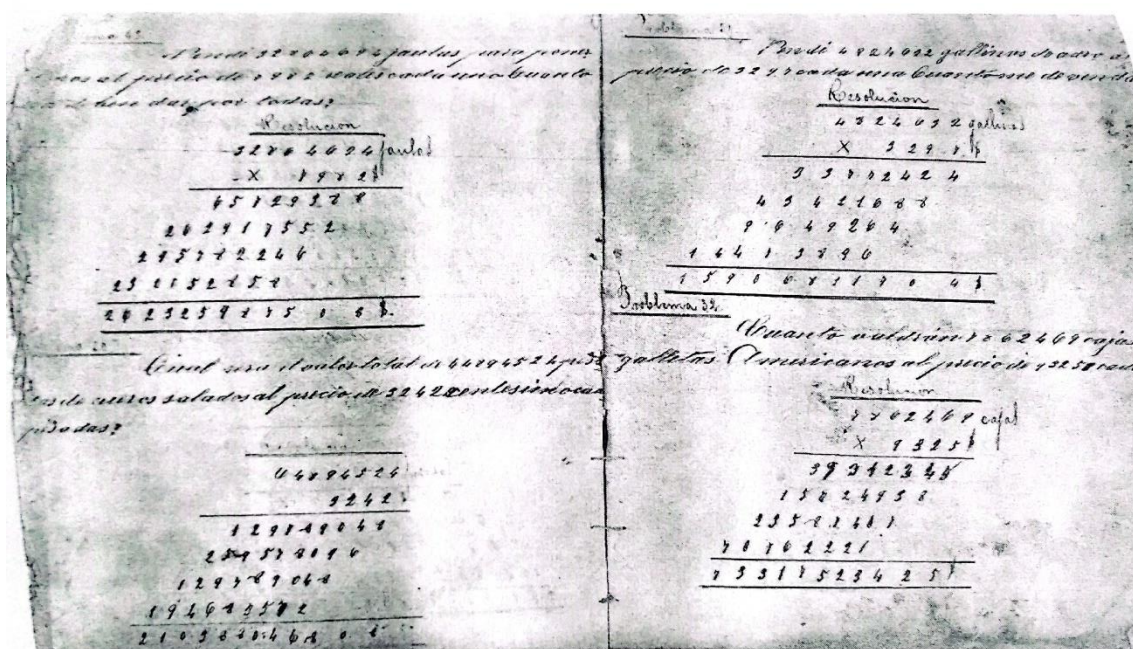 Vendi 32864694 jaulas para poner
al precio de 7982 reales cada una Cuanto
dar por todas?
Resolucion
32864694 jaulas
X 7982 $
65729388
262917552
295782246
230052858
262325987508 $.
Cual sera el valor total de 64894524
de cueros salados al precio de 3242 centesimos cada
pesadas?
64894524
3242
129789048
259578096
129789048
194683572
210388046808
Vendi 4824632 gallinas
precio de 3297 cada una Cuanto me
Resolucion
4824632 gallinas
X 3297 $
33772424
43421688
9649264
14473896
15906811704 $
Problema 32
Cuanto valdrán 7862469 cajas
galletas Americanas al precio de 9325 $ cada
Resolucion
7862469 cajas
X 9325 $
39312345
15724938
23587407
70762221
73317523425 $